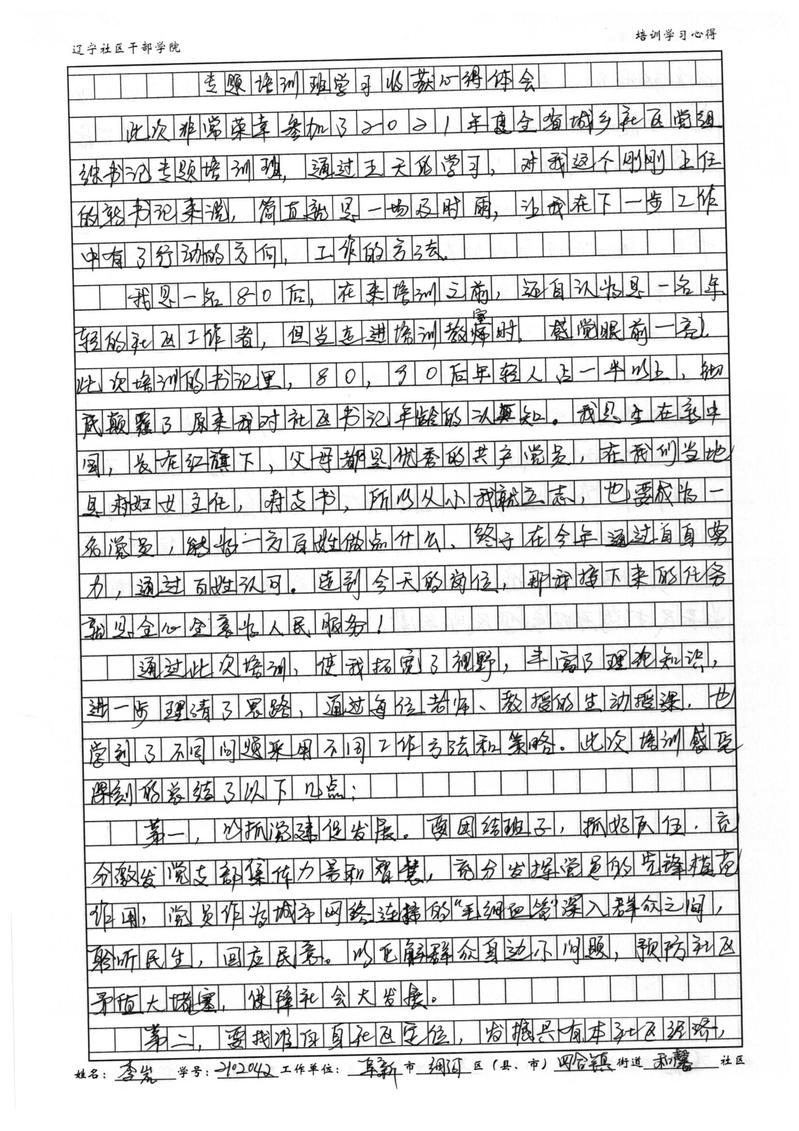 辽宁社区干部学院
培训学习心得
专题培训班学习收获心得体会
此次非常荣幸参加了2021年度全省城乡社区党组
织书记专题培训班，通过五天的学习，对我这个刚刚上任
的新书记来说，简直就是一场及时雨，让我在下一步工作
中有了行动的方向，工作的方法。
我是一名80后，在来培训之前，还自认为是一名年
轻的社区工作者，但当走进培训教室时，感觉眼前一亮，
此次培训的书记里，80，90后年轻人占一半以上，彻
底颠覆了原来我对社区书记年龄的认知。我是生在新中
国，长在红旗下，父母都是优秀的共产党员，在我们当地
是村妇女主任，村支书，所以从小我就立志，也要成为一
名党员，能为一方百姓做点什么、终于在今年通过自身努
力，通过百姓认可。走到今天的岗位，那我接下来的任务
就是全心全意为人民服务！
通过此次培训，使我拓宽了视野，丰富了理论知识，
进一步理清了思路，通过每位老师、教授的生动授课，也
学到了不同问题采用不同工作方法和策略。此次培训感觉
深刻的总结了以下几点：
第一，以抓党建促发展。要团结班子，抓好队伍，充
分激发党支部集体力量和智慧，充分发挥党员的先锋模范
作用，党员作为城市网络连接的"毛细血管"深入群众之间，
聆听民生，回应民意。以化解群众身边小问题，预防社区
矛盾大堵塞，保障社会大发展。
第二，要找准自身社区定位，发掘具有本社区经济，
姓名：李岩 学号：2102042 工作单位：阜新市细河区（县、市）四合镇街道和馨社区